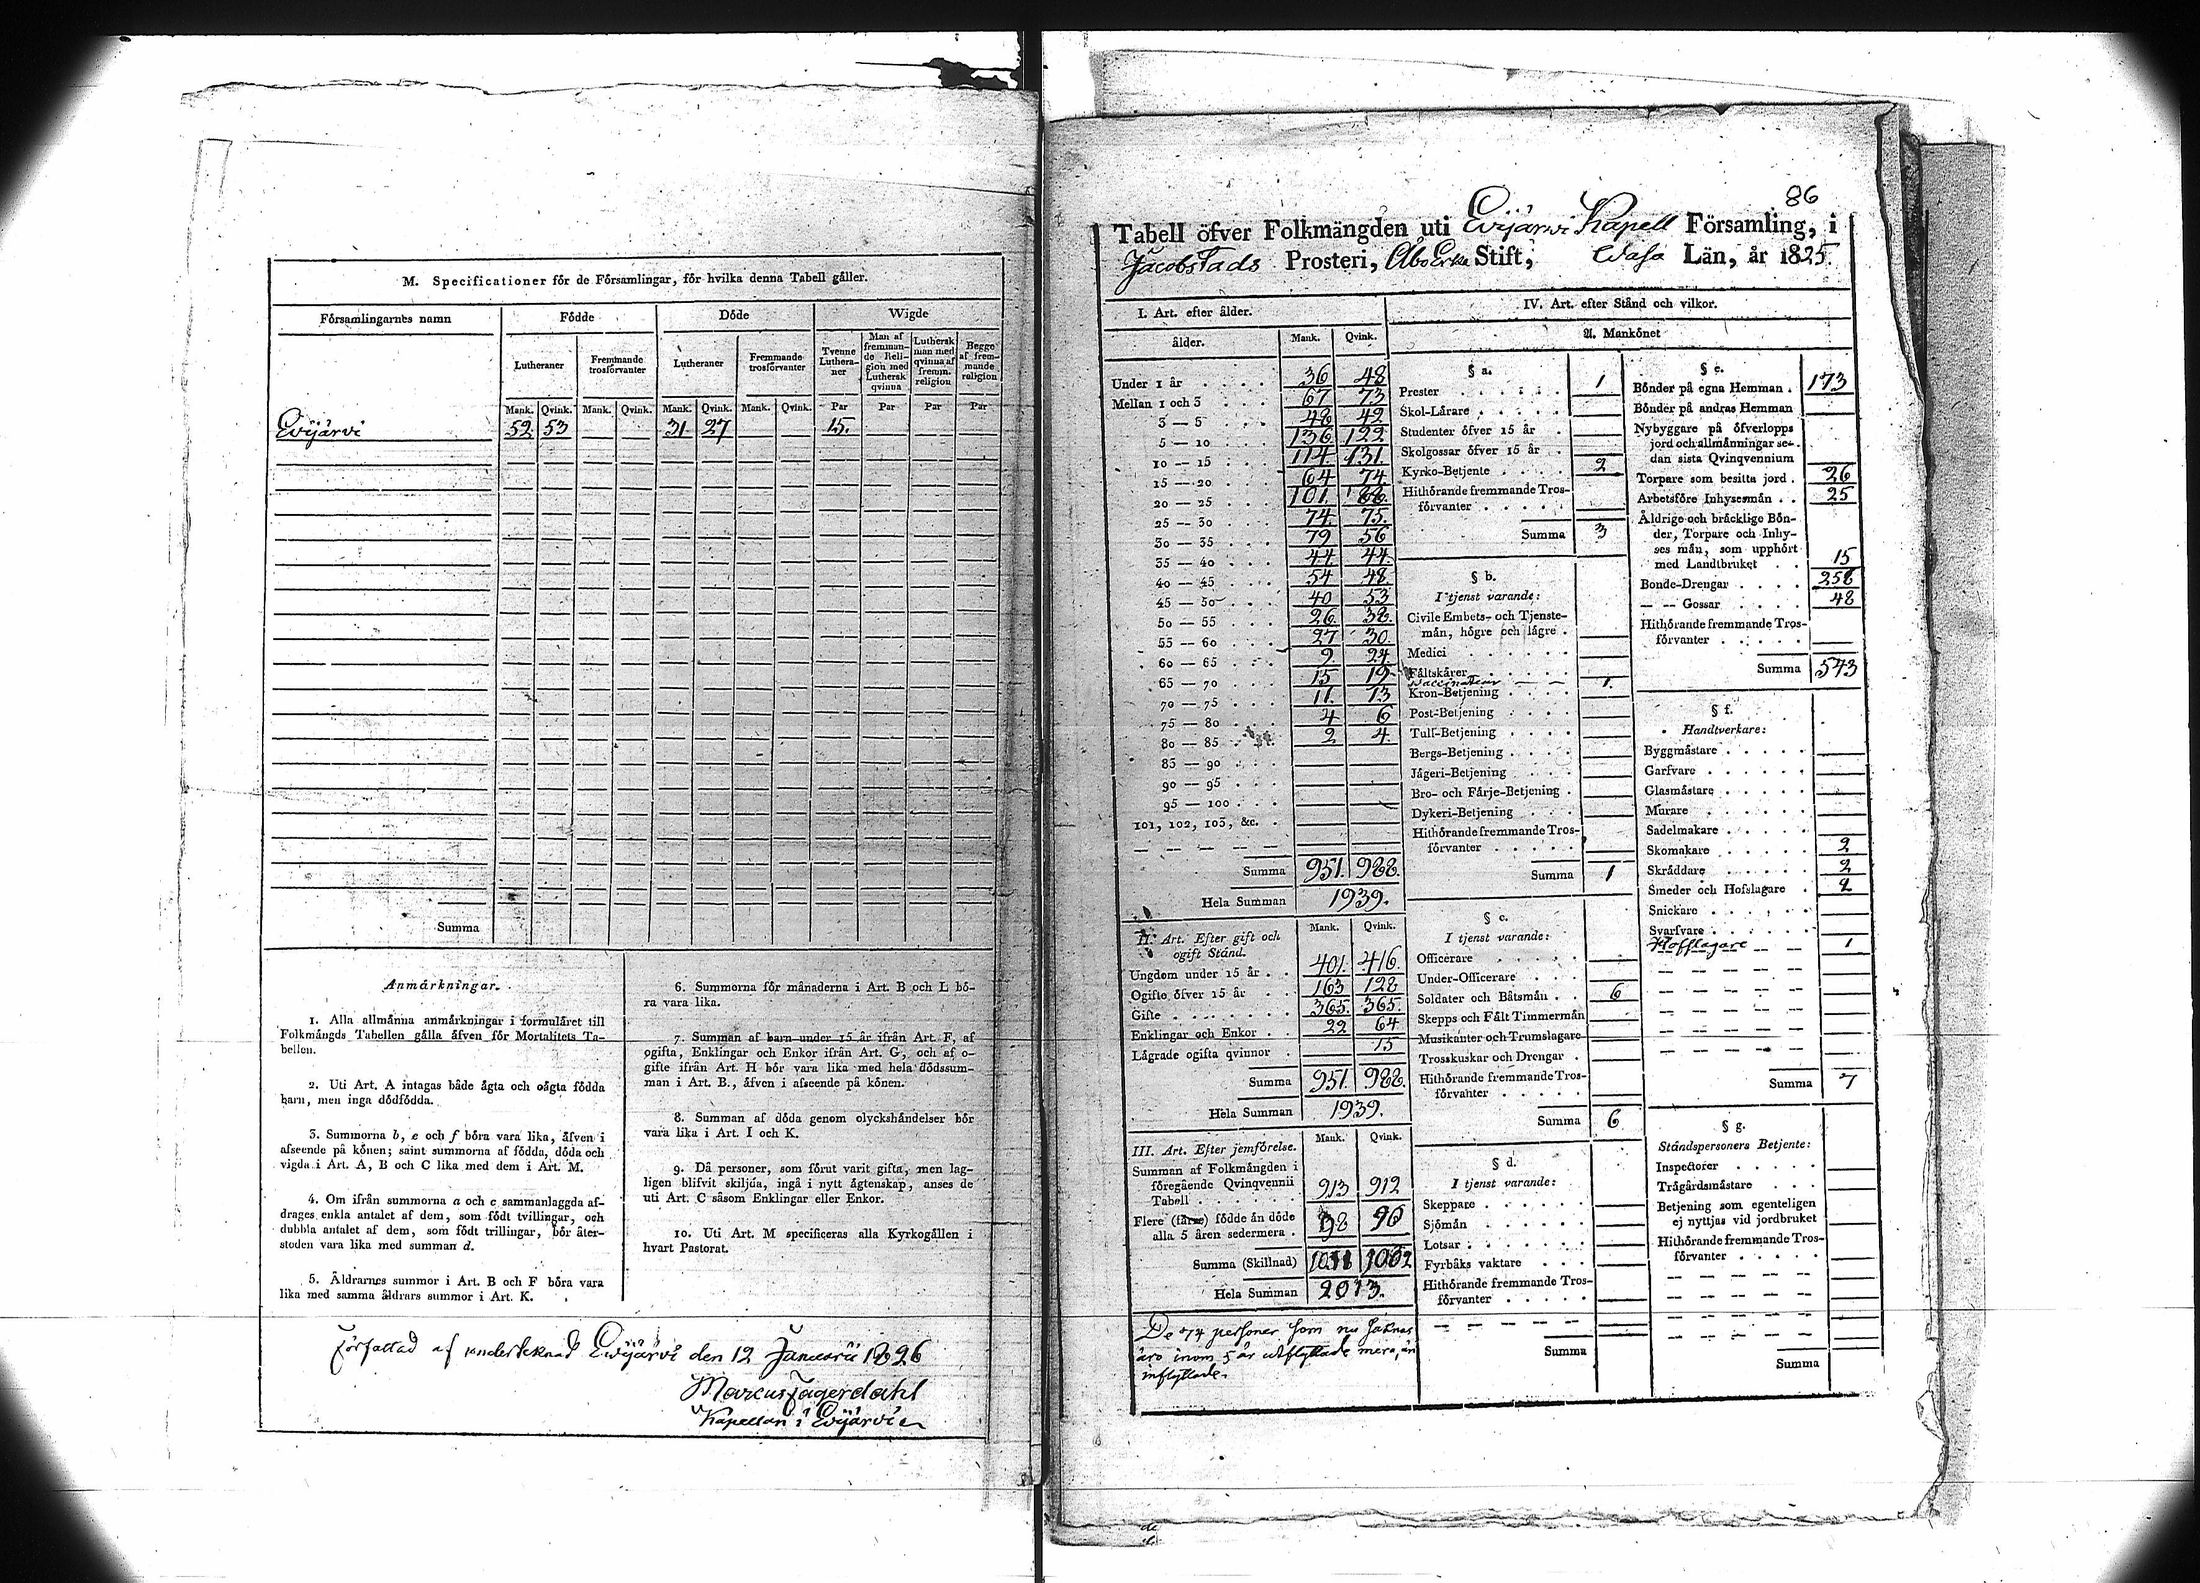 M. Specificationer för de Församlingar, för hvilka denna Tabell gäller.
Församlingarnes namn Födde Döde Wigde
Lutheraner Fremmande trosförvanter Lutheraner Fremmande trosförvanter Tvenne Lutheraner Man af fremmande Religion med Luthersk qvinna Luthersk man med qvinna af fremm. religion Begge af fremmande religion
Mank. Qvink. Mank. Qvink. Mank. Qvink. Mank. Qvink. Par Par Par Par
Evijärvi 52 53 31 27 15.
Summa
Anmärkningar.
1. Alla allmänna anmärkningar i formuläret till
Folkmängds Tabellen gälla äfven för Mortalitets Ta-
bellen.
2. Uti Art. A intagas både ägta och oägta födda
barn, men inga dödfödda.
3. Summorna b, e och f böra vara lika, äfven i
afseende på könen; samt summorna af födda, döda och
vigda i Art. A, B och C lika med dem i Art. M.
4. Om ifrån summorna a och c sammanlaggda af-
drages enkla antalet af dem, som födt tvillingar, och
dubbla antalet af dem, som födt trillingar, bör åter-
stoden vara lika med summan d.
5. Åldrarnes summor i Art. B och F böra vara
lika med samma åldrars summor i Art. K.
6. Summorna för månaderna i Art. B och L bö-
ra vara lika.
7. Summan af barn under 15 år ifrån Art. F, af
ogifta, Enklingar och Enkor ifrån Art. G, och af o-
gifte ifrån Art. H bör vara lika med hela dödssum-
man i Art. B., äfven i afseende på könen.
8. Summan af döda genom olyckshändelser bör
vara lika i Art. I och K.
9. Då personer, som förut varit gifta, men lag-
ligen blifvit skiljda, ingå i nytt ägtenskap, anses de
uti Art. C såsom Enklingar eller Enkor.
10. Uti Art. M specificeras alla Kyrkogällen i
hvart Pastorat.
Författad af undertecknad Evijärvi den 12 Januarii 1826
Marcus Jagerdahl
Kapellan i Evijärvi
86
Tabell öfver Folkmängden uti Evijärvi Kapell Församling, i
Jacobstads Prosteri, Åbo Erke Stift, Wasa Län, år 1825.
I. Art. efter ålder.
ålder. Mank. Qvink.
Under 1 år 36 48
Mellan 1 och 3 67 73
3 — 5 48 42
5 — 10 136 122
10 — 15 114 131.
15 — 20 64 74
20 — 25 101. 88.
25 — 30 74 75.
30 — 35 79 56
35 — 40 44 44
40 — 45 54 48
45 — 50 40 53
50 — 55 26 38.
55 — 60 27 30
60 — 65 9 24
65 — 70 15 19
70 — 75 11. 13
75 — 80 4 6
80 — 85 2 4.
85 — 90
90 — 95
95 — 100
101, 102, 103, &c.
Summa 951. 988.
Hela Summan 1939.
II. Art. Efter gift och ogift Stånd. Mank. Qvink.
Ungdom under 15 år 401. 416.
Ogifte öfver 15 år 163 128
Gifte 365. 365.
Enklingar och Enkor 22 64
Lägrade ogifta qvinnor 15
Summa 951. 988.
Hela Summan 1939.
III. Art. Efter jemförelse. Mank. Qvink.
Summan af Folkmängden i
föregående Qvinqvennii
Tabell 913 912
Flere (färre) födde än döde
alla 5 åren sedermera 98 90
Summa (Skillnad) 1011 1002
Hela Summan 2013.
De 74 personer som nu saknas
äro inom 5 år utflyttade mera, än
inflyttade.
IV. Art. efter Stånd och vilkor.
A. Mankönet
§ a.
Prester 1
Skol-Lärare
Studenter öfver 15 år
Skolgossar öfver 15 år
Kyrko-Betjente 2
Hithörande fremmande Tros-
förvanter
Summa 3
§ b.
I tjenst varande:
Civile Embets- och Tjenste-
män, högre och lägre
Medici
Fältskärer
Vaccinateur 1.
Kron-Betjening
Post-Betjening
Tull-Betjening
Bergs-Betjening
Jägeri-Betjening
Bro- och Färje-Betjening
Dykeri-Betjening
Hithörande fremmande Tros-
förvanter
Summa 1
§ c.
I tjenst varande:
Officerare
Under-Officerare
Soldater och Båtsmän 6
Skepps och Fält Timmermän
Musikanter och Trumslagare
Trosskuskar och Drengar
Hithörande fremmande Tros-
förvanter
Summa 6
§ d.
I tjenst varande:
Skeppare
Sjömän
Lotsar
Fyrbåks vaktare
Hithörande fremmande Tros-
förvanter
Summa
§ e.
Bönder på egna Hemman 173
Bönder på andras Hemman
Nybyggare på öfverlopps
jord och allmänningar se-
dan sista Qvinqvennium
Torpare som besitta jord 26
Arbetsföre Inhysesmän 25
Åldrige och bräcklige Bön-
der, Torpare och Inhy-
ses män, som upphört
med Landtbruket 15
Bonde-Drengar 258
— — Gossar 48
Hithörande fremmande Tros-
förvanter
Summa 543
§ f.
Handtverkare:
Byggmästare
Garfvare
Glasmästare
Murare
Sadelmakare
Skomakare 2
Skräddare 2
Smeder och Hofslagare 2
Snickare
Svarfvare
Hofslagare 1
Summa 7
§ g.
Ståndspersoners Betjente:
Inspectorer
Trägårdsmästare
Betjening som egenteligen
ej nyttjas vid jordbruket
Hithörande fremmande Tros-
förvanter
Summa